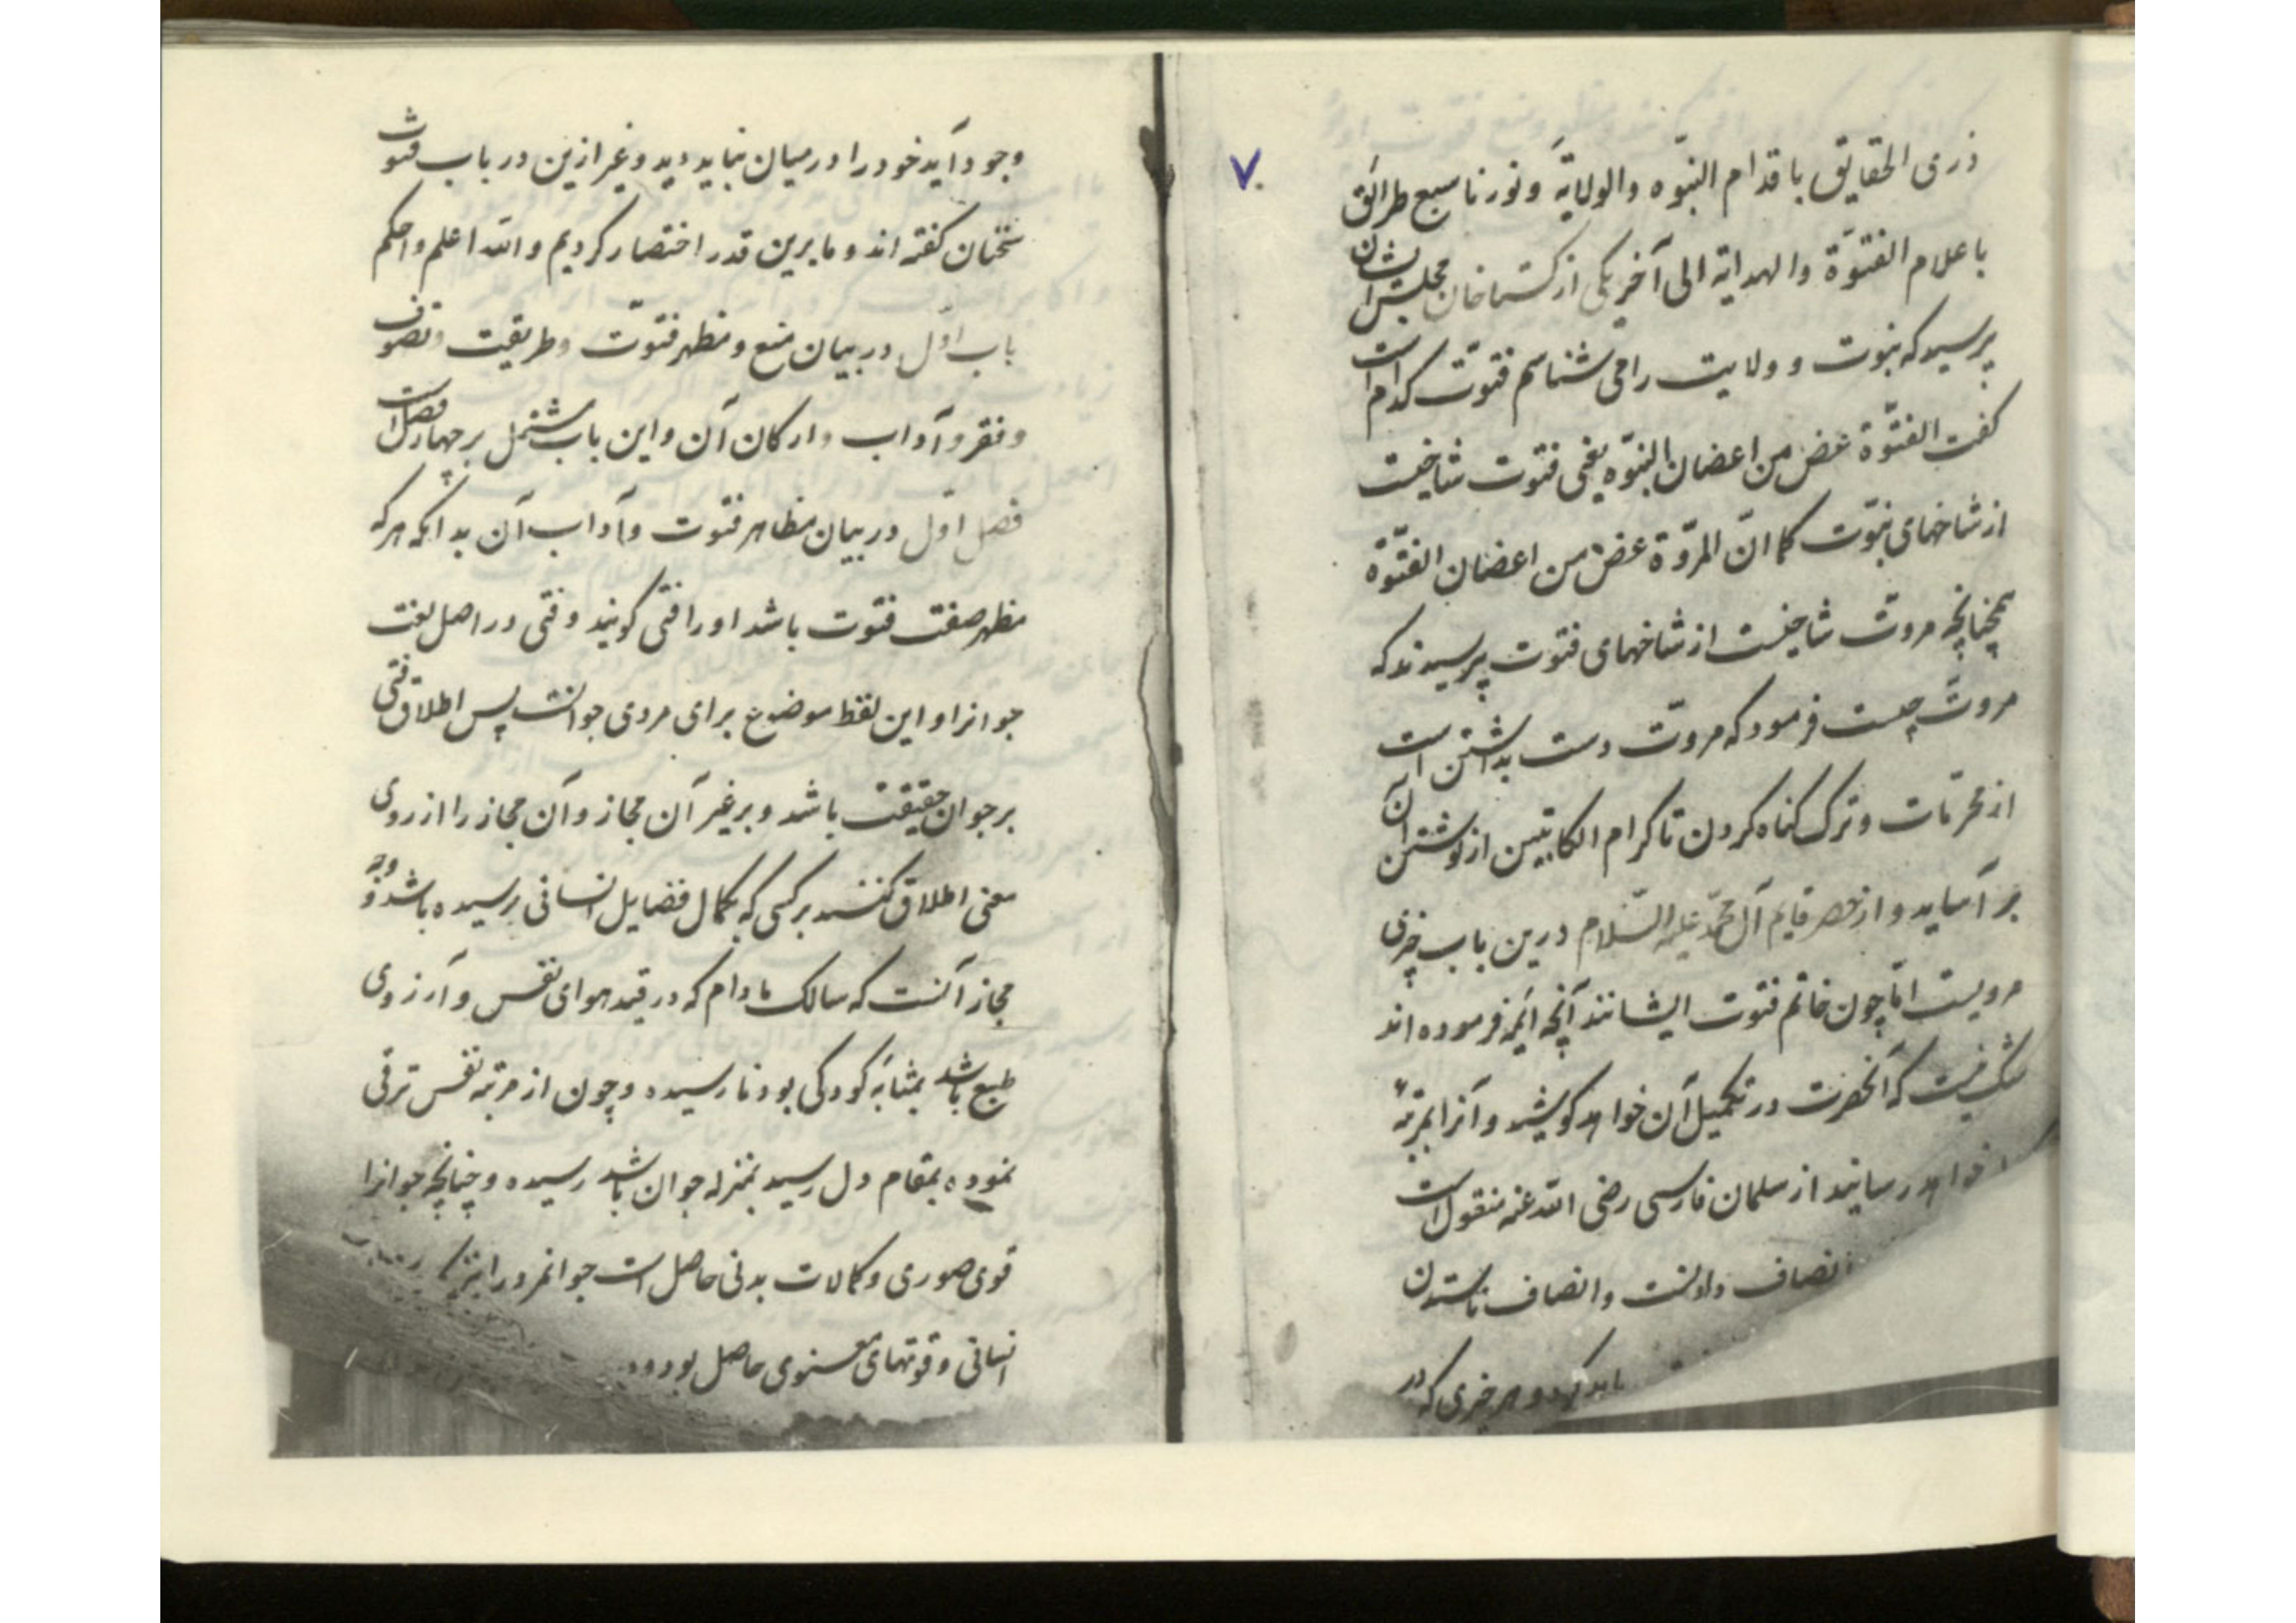 ذری الحقایق باقدام النبوّه والولایة ونورنا سبع طرائق
باعلام الفتوّة والهدایة الی آخر یکی از کستاخان مجلس ایشان
پرسید که نبوت و ولایت را می شناسم فتوّت کدام است
کفت الفتوّة غصن من اغصان النبوّه یعنی فتوت شاخیست
از شاخهای نبوّت کما انّ المروّة غصن من اغصان الفتوّة
همچنانچه مروتّ شاخیست از شاخهای فتوت پرسیدند که
مروتّ چیست فرمود که مروتّ دست بداشتن است
از محرمّات وترک کناه کردن تا کرام الکاتبین از نوشتن آن
بر آساید و از حضر قایم آل محمّد علیه السّلام درین باب چیزی
مرویست امّا چون خاتم فتوت ایشانند آنچه ائمه فرموده اند
شک نیست که آنحضرت در تکمیل آن خواهد کوشید و آنرا بمرتبهٔ
خواهد رسانید از سلمان فارسی رضی الله عنه منقول است
انصاف دادنست وانصاف ناستدن
باید کرد و هر چیزی که در
۷
وجود آید خود را در میان نباید دید وغیر ازین در باب فتوت
سخنان کفته اند و ما برین قدر اختصار کردیم والله اعلم واحکم
باب اوّل در بیان منبع و مظهر فتوتّ وطریقت وتصوف
وفقر وآداب وارکان آن واین باب مشتمل بر چهار فصل است
فصل اوّل در بیان مظاهر فتوت وآداب آن بدانکه هر که
مظهر صفت فتوت باشد او را فتی کویند وفتی در اصل لغت
جوانرا و این لفظ موضوع برای مردی جوانست پس اطلاق فتی
بر جوان حقیقت باشد و بر غیر آن مجاز وآن مجاز را از روی
معنی اطلاق کنند بر کسی که بکمال فضایل انسانی رسیده باشد و وجه
مجاز آنست که سالک مادام که در قید هوای نفس وآرزوی
طبع باشد بمثابهٔ کودکی بود نارسیده وچون از مرتبه نفس ترقی
نموده بمقام دل رسید بمنزله جوان باشد رسیده وچنانچه جوانرا
قوی صوری وکمالات بدنی حاصل است جوانمرد را نیز
انسانی وقوتهای معنوی حاصل بود و